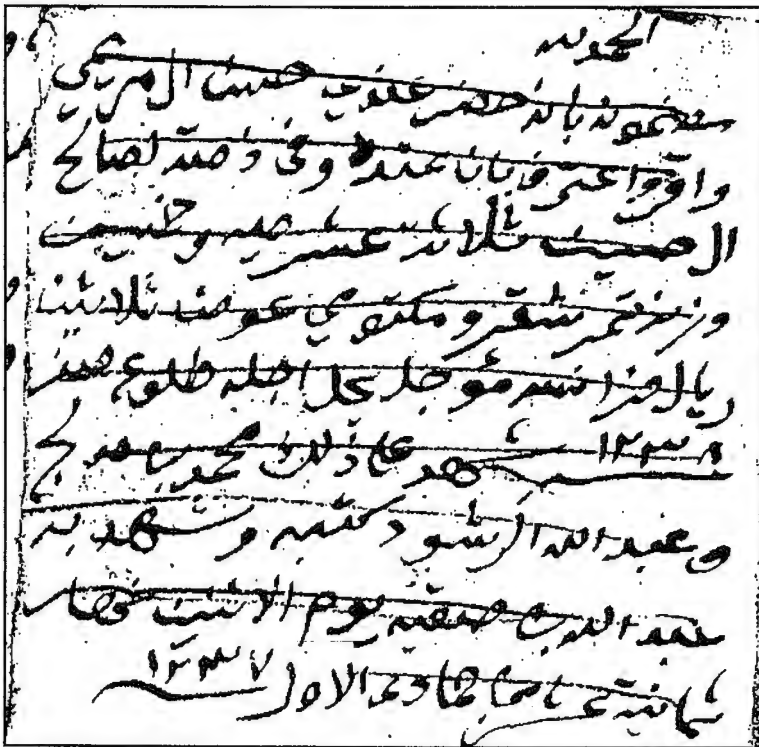 الحمد لله
يعلمون بانه حضر عندي حسن المريحي
واقروا عترف بان عنده وفي ذمته لصالح
الحسين ثلاثة عشر ميه وخمسين
وزنه تمر شقر ومكتومي عوض ثلاثين
ريال فرانسه مؤجل يحل اجله طلوع صفر
١٢٣٨ شهد على ذلك محمد
وعبد الله الرشود كتبه وشهد به
عبد الله بن يوم الاثنين نهار
ثمانية عشر من جمادى الاول ١٢٣٧